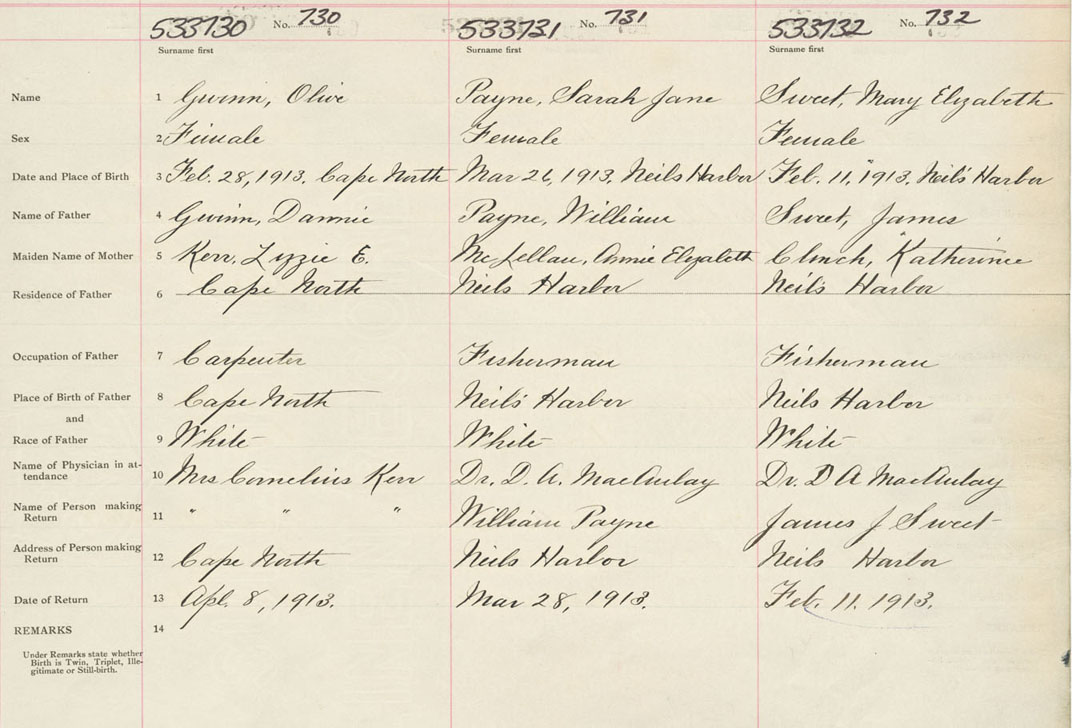 533730 No. 730 533731 No. 731 533732 No. 732
Surname first Surname first Surname first
Name 1 Gwinn, Olive Payne, Sarah Jane Sweet, Mary Elizabeth
Sex 2 Female Female Female
Date and Place of Birth 3 Feb. 28, 1913. Cape North Mar 26, 1913. Neils Harbor Feb. 11, 1913. Neil's Harbor
Name of Father 4 Gwinn, Dannie Payne, William Sweet, James
Maiden Name of Mother 5 Kerr, Lizzie E. McLellan, Annie Elizabeth Clinch, Katherine
Residence of Father 6 Cape North Neils Harbor Neil's Harbor
Occupation of Father 7 Carpenter Fisherman Fisherman
Place of Birth of Father 8 Cape North Neil's Harbor Neils Harbor
and
Race of Father 9 White White White
Name of Physician in at-
tendance 10 Mrs Cornelius Kerr Dr. D. A. MacAulay Dr. D A MacAulay
Name of Person making
Return 11 " " " William Payne James J Sweet
Address of Person making
Return 12 Cape North Neils Harbor Neils Harbor
Date of Return 13 Apl. 8, 1913. Mar 28, 1913. Feb. 11. 1913.
REMARKS 14
Under Remarks state whether
Birth is Twin, Triplet, Ille-
gitimate or Still-birth.